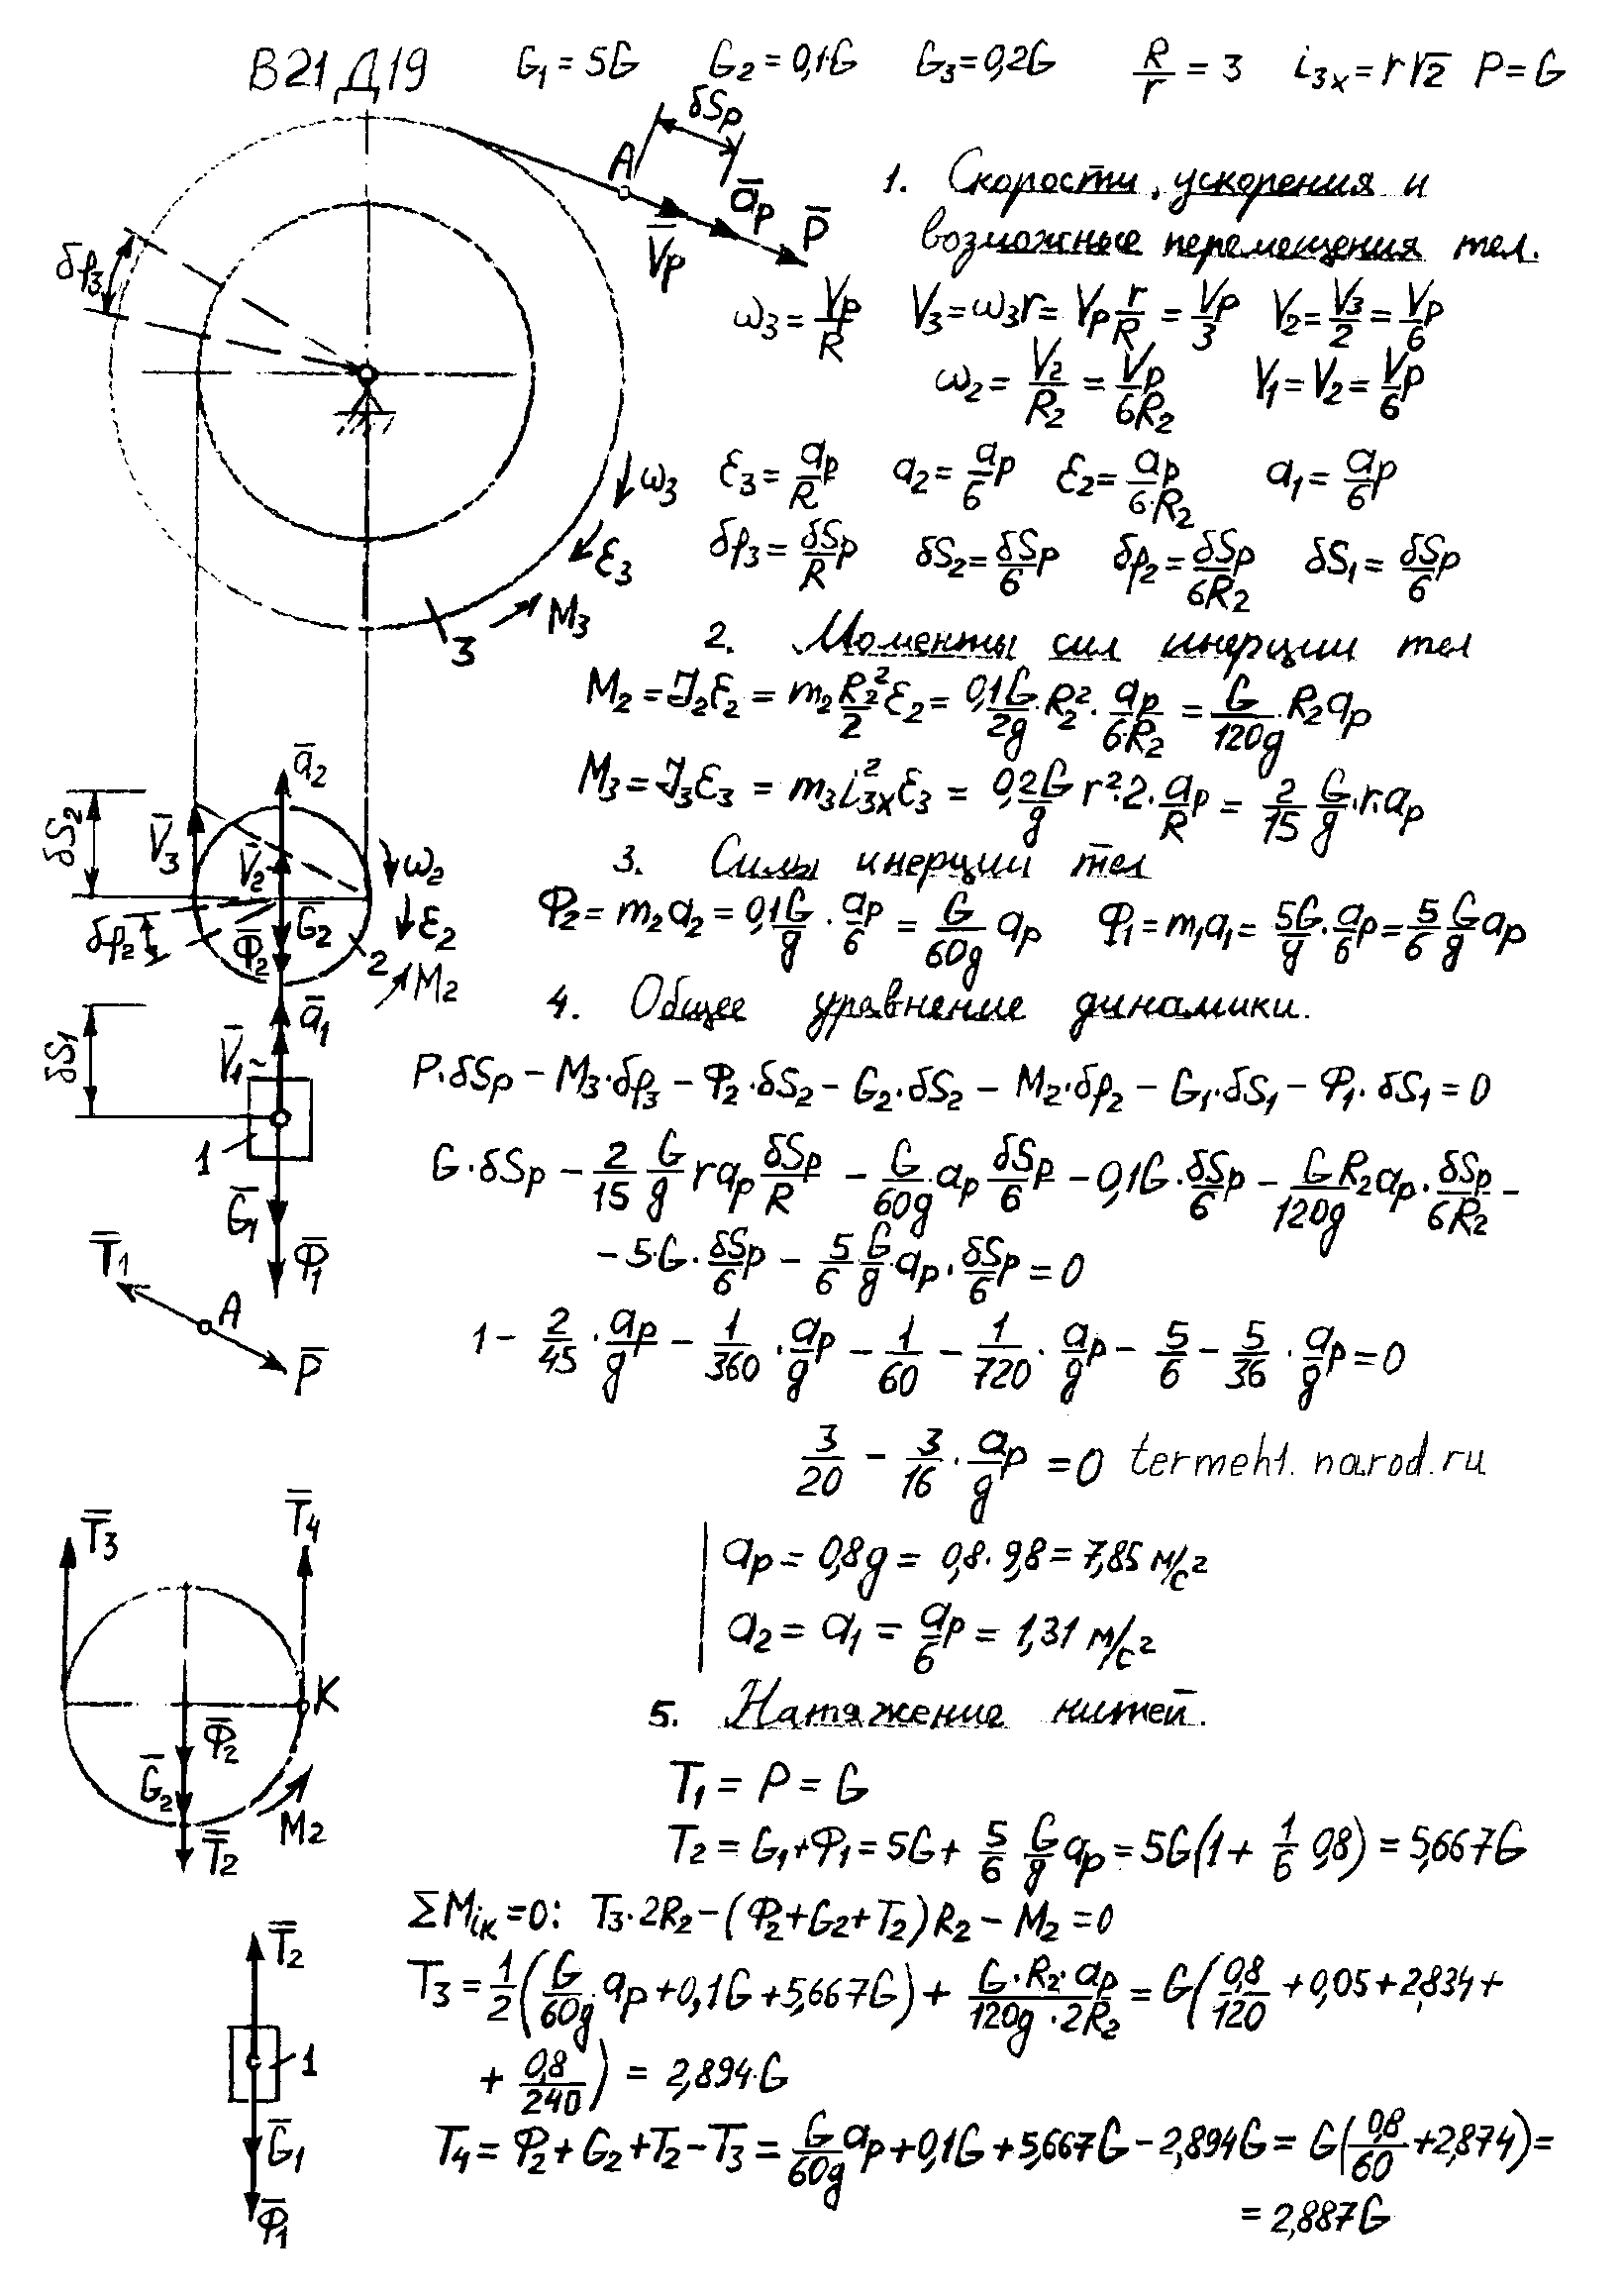 В21Д19 G₁ = 5G G₂ = 0,1·G G₃ = 0,2G R/r = 3 i₃ₓ = r√2 P = G
δSₚ
A
a̅ₚ
V̅ₚ
P̅
δφ₃
1. Скорости, ускорения и
возможные перемещения тел.
ω₃ = Vₚ/R V₃ = ω₃r = Vₚ r/R = Vₚ/3 V₂ = V₃/2 = Vₚ/6
ω₂ = V₂/R₂ = Vₚ/6R₂ V₁ = V₂ = Vₚ/6
ω₃ ε₃ = aₚ/R a₂ = aₚ/6 ε₂ = aₚ/6·R₂ a₁ = aₚ/6
ε₃ δφ₃ = δSₚ/R δS₂ = δSₚ/6 δφ₂ = δSₚ/6R₂ δS₁ = δSₚ/6
M₃
3
2. Моменты сил инерции тел
M₂ = J₂ε₂ = m₂ R₂²/2 ε₂ = 0,1G/2g · R₂² · aₚ/6·R₂ = G/120g · R₂aₚ
M₃ = J₃ε₃ = m₃i₃ₓ²ε₃ = 0,2G/g r²·2· aₚ/R = 2/15 G/g ·r·aₚ
a̅₂
δS₂
V̅₃
V̅₂
ω₂
3. Силы инерции тел
Φ₂ = m₂a₂ = 0,1G/g · aₚ/6 = G/60g aₚ Φ₁ = m₁a₁ = 5G/g · aₚ/6 = 5/6 G/g aₚ
G̅₂
ε₂
δφ₂
Φ̅₂
2
M₂
4. Общее уравнение динамики.
a̅₁
V̅₁
δS₁
P·δSₚ − M₃·δφ₃ − Φ₂·δS₂ − G₂·δS₂ − M₂·δφ₂ − G₁·δS₁ − Φ₁·δS₁ = 0
1
G·δSₚ − 2/15 G/g raₚ δSₚ/R − G/60g·aₚ δSₚ/6 − 0,1G·δSₚ/6 − GR₂aₚ/120g · δSₚ/6R₂ −
G̅₁
− 5·G·δSₚ/6 − 5/6 G/g·aₚ·δSₚ/6 = 0
T̅₁
Φ̅₁
A
P̅
1 − 2/45 · aₚ/g − 1/360 · aₚ/g − 1/60 − 1/720 · aₚ/g − 5/6 − 5/36 · aₚ/g = 0
3/20 − 3/16 · aₚ/g = 0 termeh1.narod.ru
T̅₃
T̅₄
aₚ = 0,8g = 0,8·9,8 = 7,85 м/с²
a₂ = a₁ = aₚ/6 = 1,31 м/с²
K
5. Натяжение нитей.
Φ̅₂
G̅₂
M₂
T̅₂
T₁ = P = G
T₂ = G₁+Φ₁ = 5G + 5/6 G/g aₚ = 5G(1 + 1/6 0,8) = 5,667G
ΣMᵢₖ = 0: T₃·2R₂ − (Φ₂+G₂+T₂)R₂ − M₂ = 0
T̅₂
T₃ = 1/2(G/60g·aₚ + 0,1G + 5,667G) + G·R₂·aₚ/120g·2R₂ = G(0,8/120 + 0,05 + 2,834 +
1
+ 0,8/240) = 2,894·G
G̅₁
T₄ = Φ₂ + G₂ + T₂ − T₃ = G/60g aₚ + 0,1G + 5,667G − 2,894G = G(0,8/60 + 2,874) =
Φ̅₁
= 2,887G